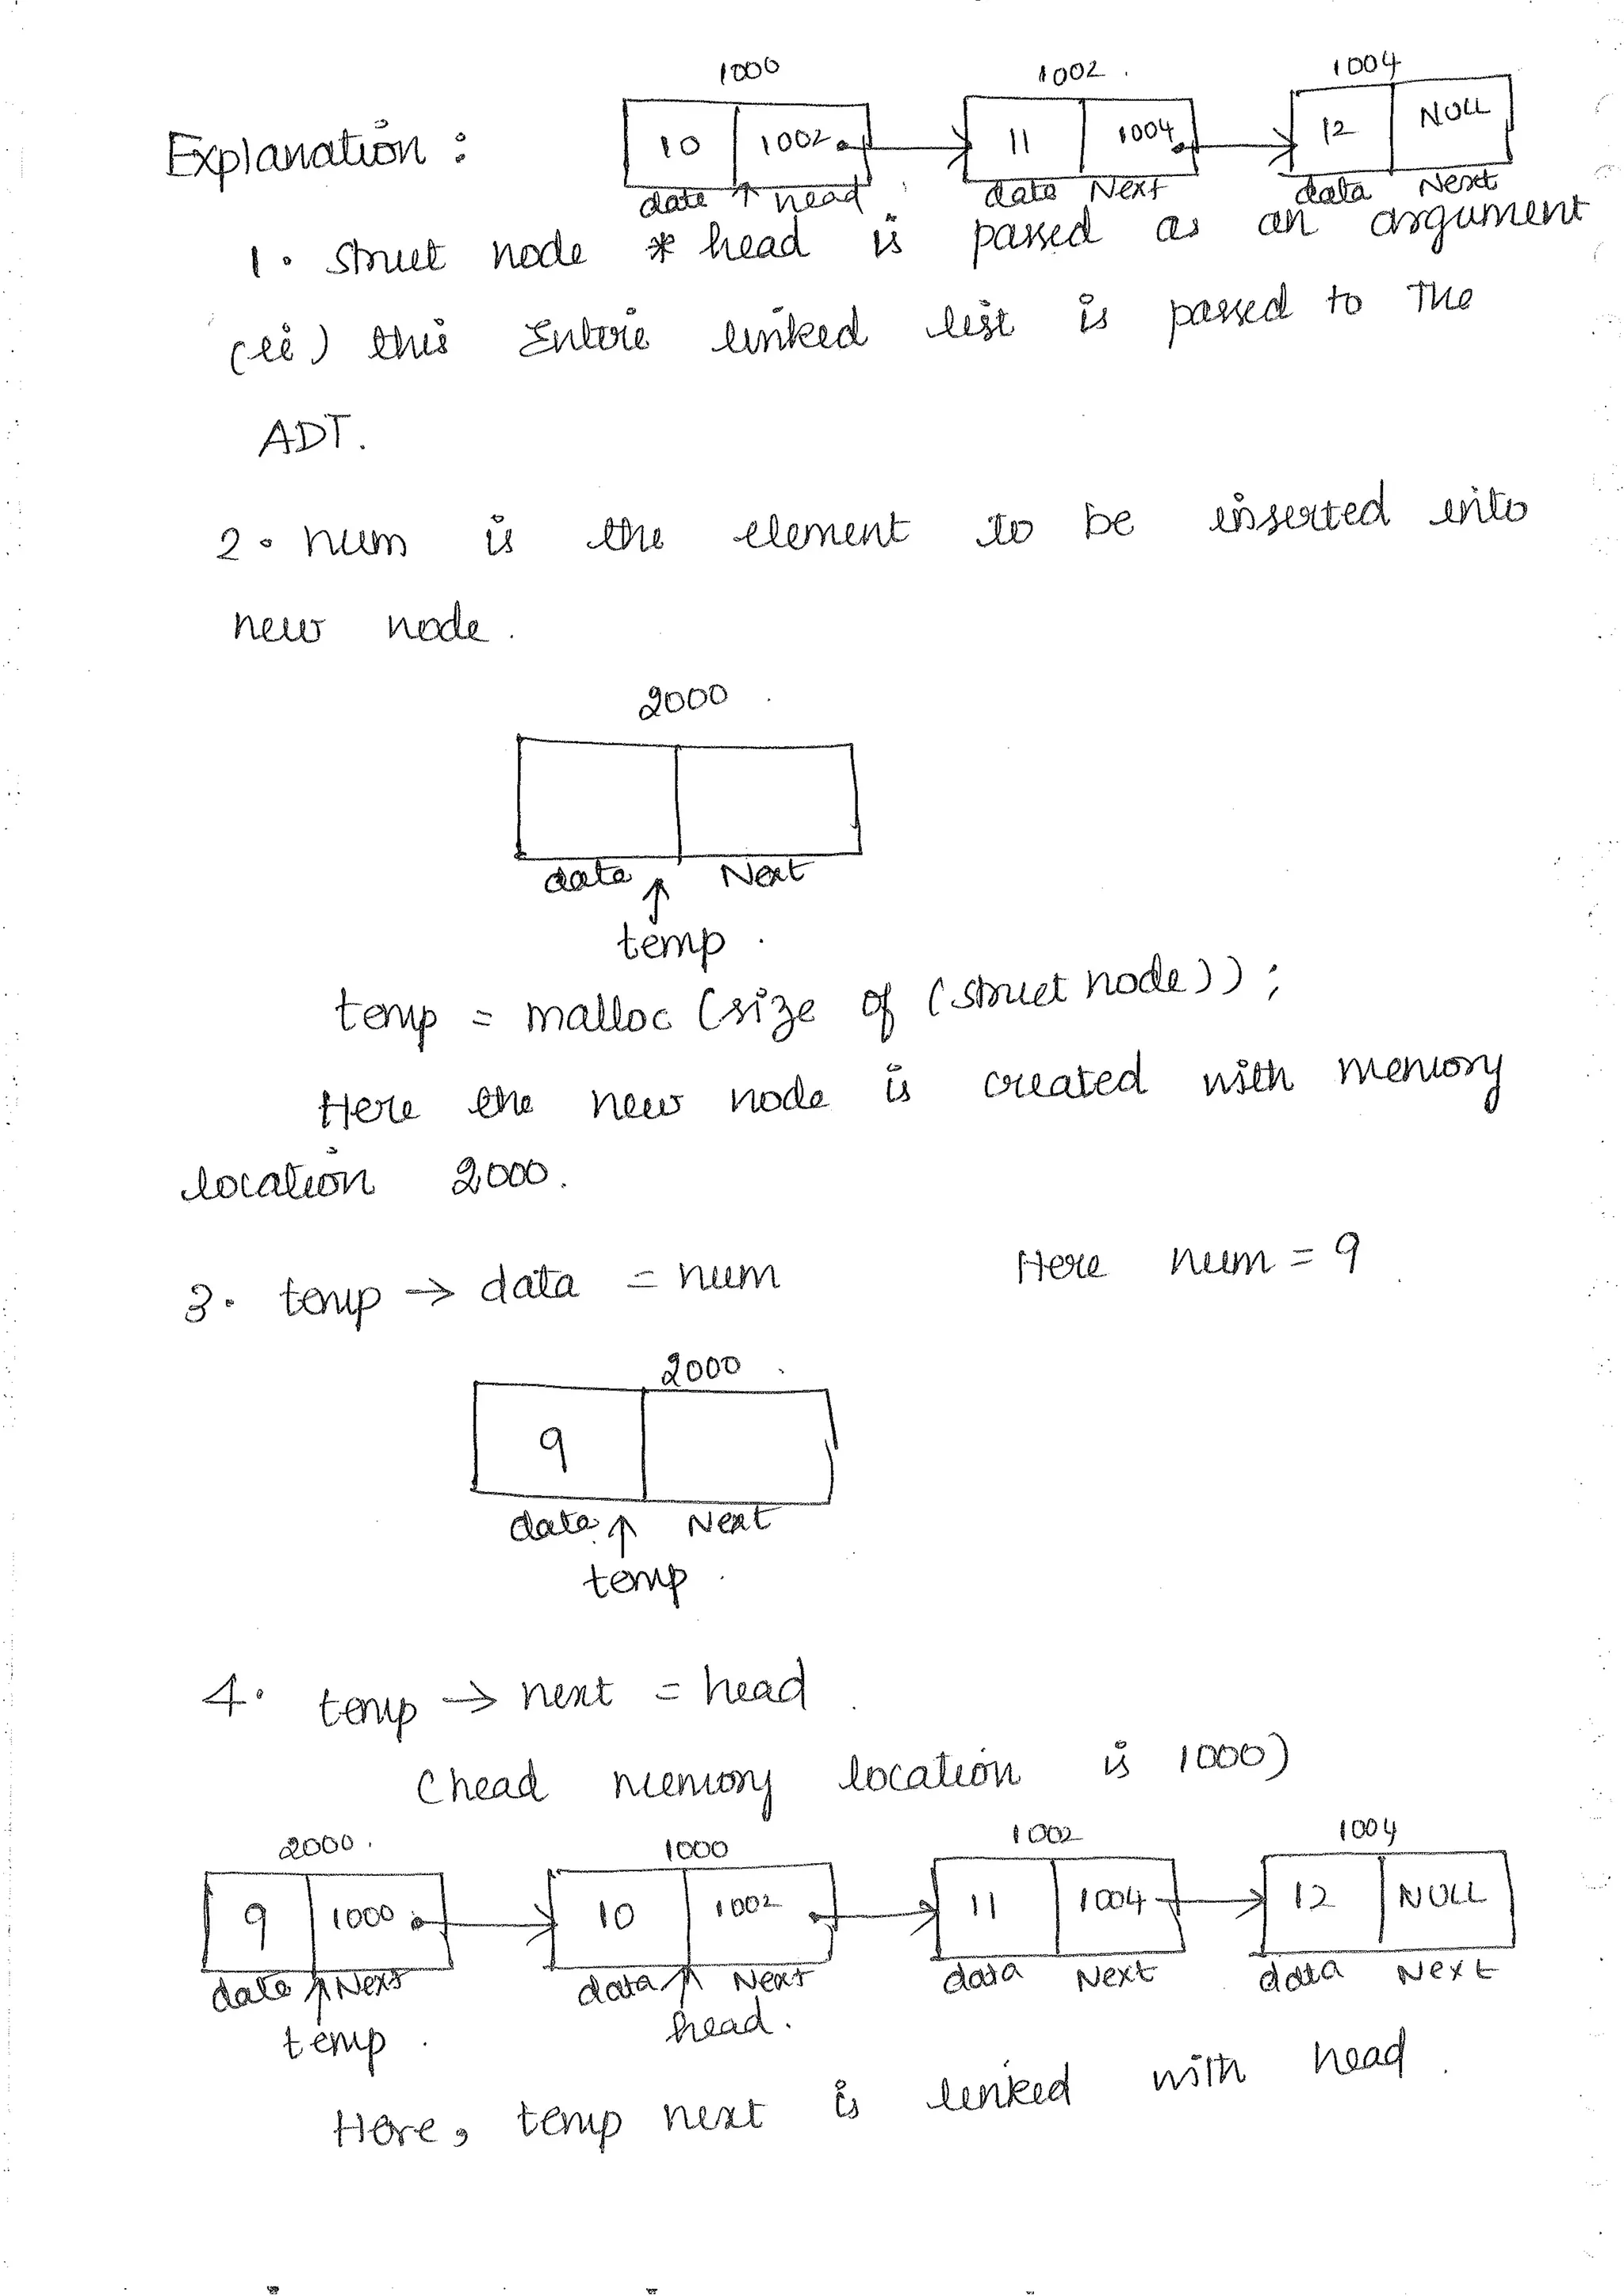 1000 1002 . 1004
Explanation : 10 1002 11 1004 12 NULL
data head data Next data Next
1. struct node * head is passed as an argument
(ii) this Entire linked list is passed to The
ADT.
2. num is the element to be inserted into
new node.
2000
data Next
temp.
temp = malloc (size of (struct node));
Here the new node is created with memory
location 2000.
3. temp → data = num Here num = 9
2000
9
data Next
temp.
4. temp → next = head
(head memory location is 1000)
2000. 1000 1002 1004
9 1000 10 1002 11 1004 12 NULL
data Next data Next data Next data Next
temp head.
Here, temp next is linked with head.